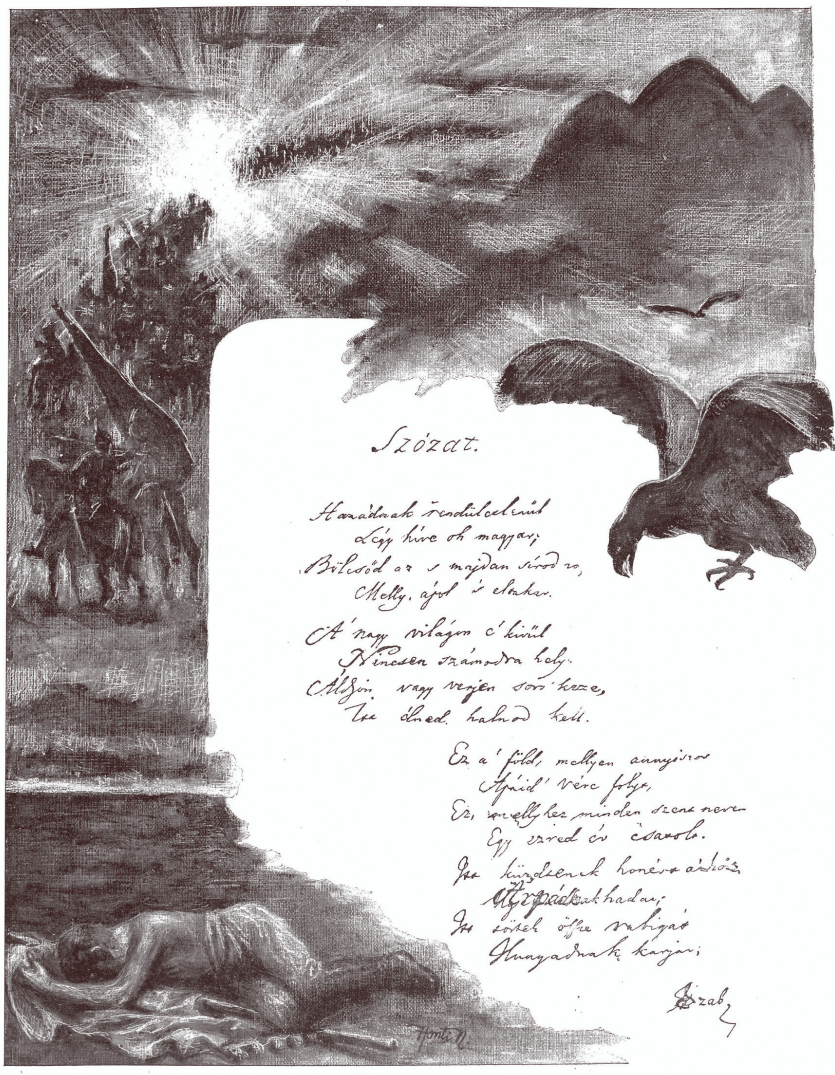 Szózat.
Hazádnak rendületlenül
Légy híve oh magyar;
Bölcsőd az s majdan sírod is,
Melly ápol és eltakar.
A' nagy világon e' kivül
Nincsen számodra hely.
Áldjon vagy verjen sors keze,
Itt élned halnod kell.
Ez a' föld, mellyen annyiszor
Apáid' vére folyt,
Ez, mellyhez minden szent nevet
Egy ezred év csatolt.
Itt küzdtenek honért a hős
Árpádnak hadai;
Itt törtek össze rabigát
Hunyadnak karjai;
Szab
Honti N.